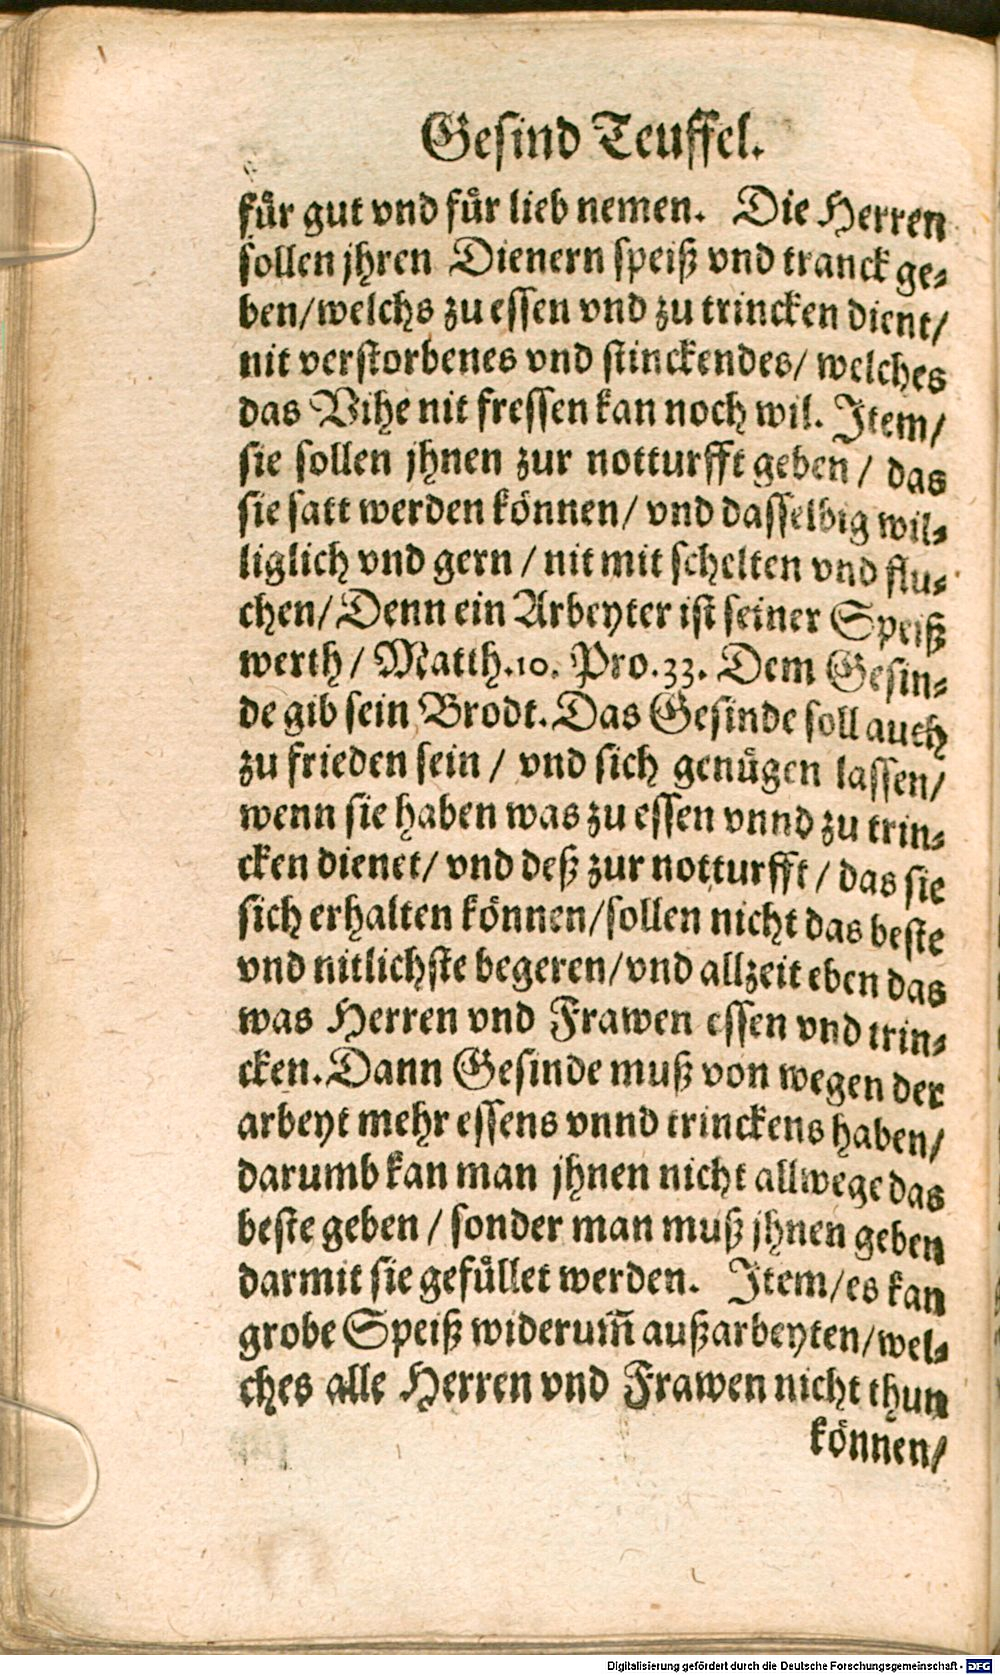 Gesind Teuffel.
fuͤr gut vnd fuͤr lieb nemen. Die Herren
sollen jhren Dienern speiß vnd tranck ge⸗
ben/welchs zu essen vnd zu trincken dient/
nit verstorbenes vnd stinckendes/ welches
das Vihe nit fressen kan noch wil. Item/
sie sollen jhnen zur notturfft geben / das
sie satt werden können/ vnd dasselbig wil⸗
liglich vnd gern / nit mit schelten vnd flu⸗
chen/ Denn ein Arbeyter ist seiner Speiß
werth / Matth.10. Pro.33. Dem Gesin⸗
de gib sein Brodt. Das Gesinde soll auch
zu frieden sein / vnd sich genuͤgen lassen/
wenn sie haben was zu essen vnnd zu trin⸗
cken dienet/ vnd deß zur notturfft / das sie
sich erhalten können/sollen nicht das beste
vnd nitlichste begeren/vnd allzeit eben das
was Herren vnd Frawen essen vnd trin⸗
cken. Dann Gesinde muß von wegen der
arbeyt mehr essens vnnd trinckens haben/
darumb kan man jhnen nicht allwege das
beste geben / sonder man muß jhnen geben
darmit sie gefuͤllet werden. Item/es kan
grobe Speiß widerum̃ außarbeyten/wel⸗
ches alle Herren vnd Frawen nicht thun
können/
Digitalisierung gefördert durch die Deutsche Forschungsgemeinschaft - DFG